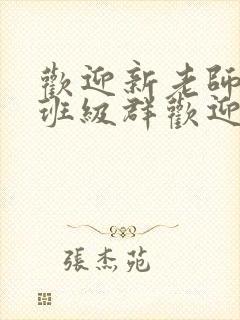 歡迎新老師
班級群歡迎
張杰苑